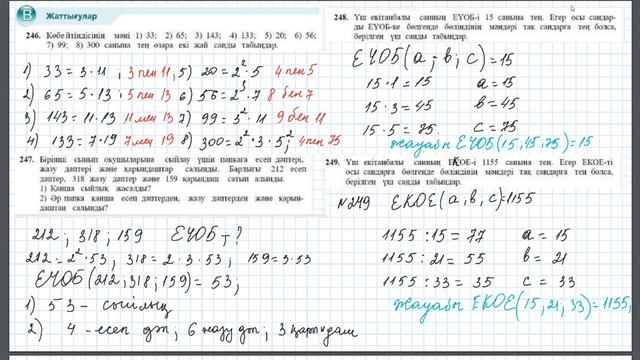 B Жаттығулар
246. Көбейтіндісінің мәні 1) 33; 2) 65; 3) 143; 4) 133; 5) 20; 6) 56;
7) 99; 8) 300 санына тең өзара екі жай санды табыңдар.
1) 33 = 3·11; 3 пен 11, 5) 20 = 2²·5 4 пен 5
2) 65 = 5·13; 5 пен 13 6) 56 = 2³·7 8 бен 7
3) 143 = 11·13 11 мен 13 7) 99 = 3²·11 9 бен 11
4) 133 = 7·19 7 мен 19 8) 300 = 2²·3·5²; 4 пен 75
247. Бірінші сынып оқушыларына сыйлау үшін папкаға есеп дәптері,
жазу дәптері және қарындаштар салынды. Барлығы 212 есеп
дәптер, 318 жазу дәптер және 159 қарындаш сатып алынды.
1) Қанша сыйлық жасалды?
2) Әр папка қанша есеп дәптерден, жазу дәптерден және қарын-
даштан салынды?
212; 318; 159 ЕҮОБ - ?
212 = 2²·53, 318 = 2·3·53; 159 = 3·53
ЕҮОБ(212; 318; 159) = 53;
1) 53 - сыйлық
2) 4 - есеп дәп; 6 жазу дәп; 3 қарындаш
248. Үш екітаңбалы санның ЕҮОБ-і 15 санына тең. Егер осы сандар-
ды ЕҮОБ-ке бөлгенде бөліндінің мәндері тақ сандарға тең болса,
берілген үш санды табыңдар.
ЕҮОБ(a; b; c) = 15
15·1 = 15 a = 15
15·3 = 45 b = 45
15·5 = 75. c = 75
жауабы ЕҮОБ(15, 45, 75) = 15
249. Үш екітаңбалы санның ЕКОЕ-і 1155 санына тең. Егер ЕКОЕ-ті
осы сандарға бөлгенде бөліндінің мәндері тақ сандарға тең болса,
берілген үш санды табыңдар.
№249 ЕКОЕ(a, b, c) = 1155
1155 : 15 = 77 a = 15
1155 : 21 = 55 b = 21
1155 : 33 = 35 c = 33
жауабы ЕКОЕ(15, 21, 33) = 1155,